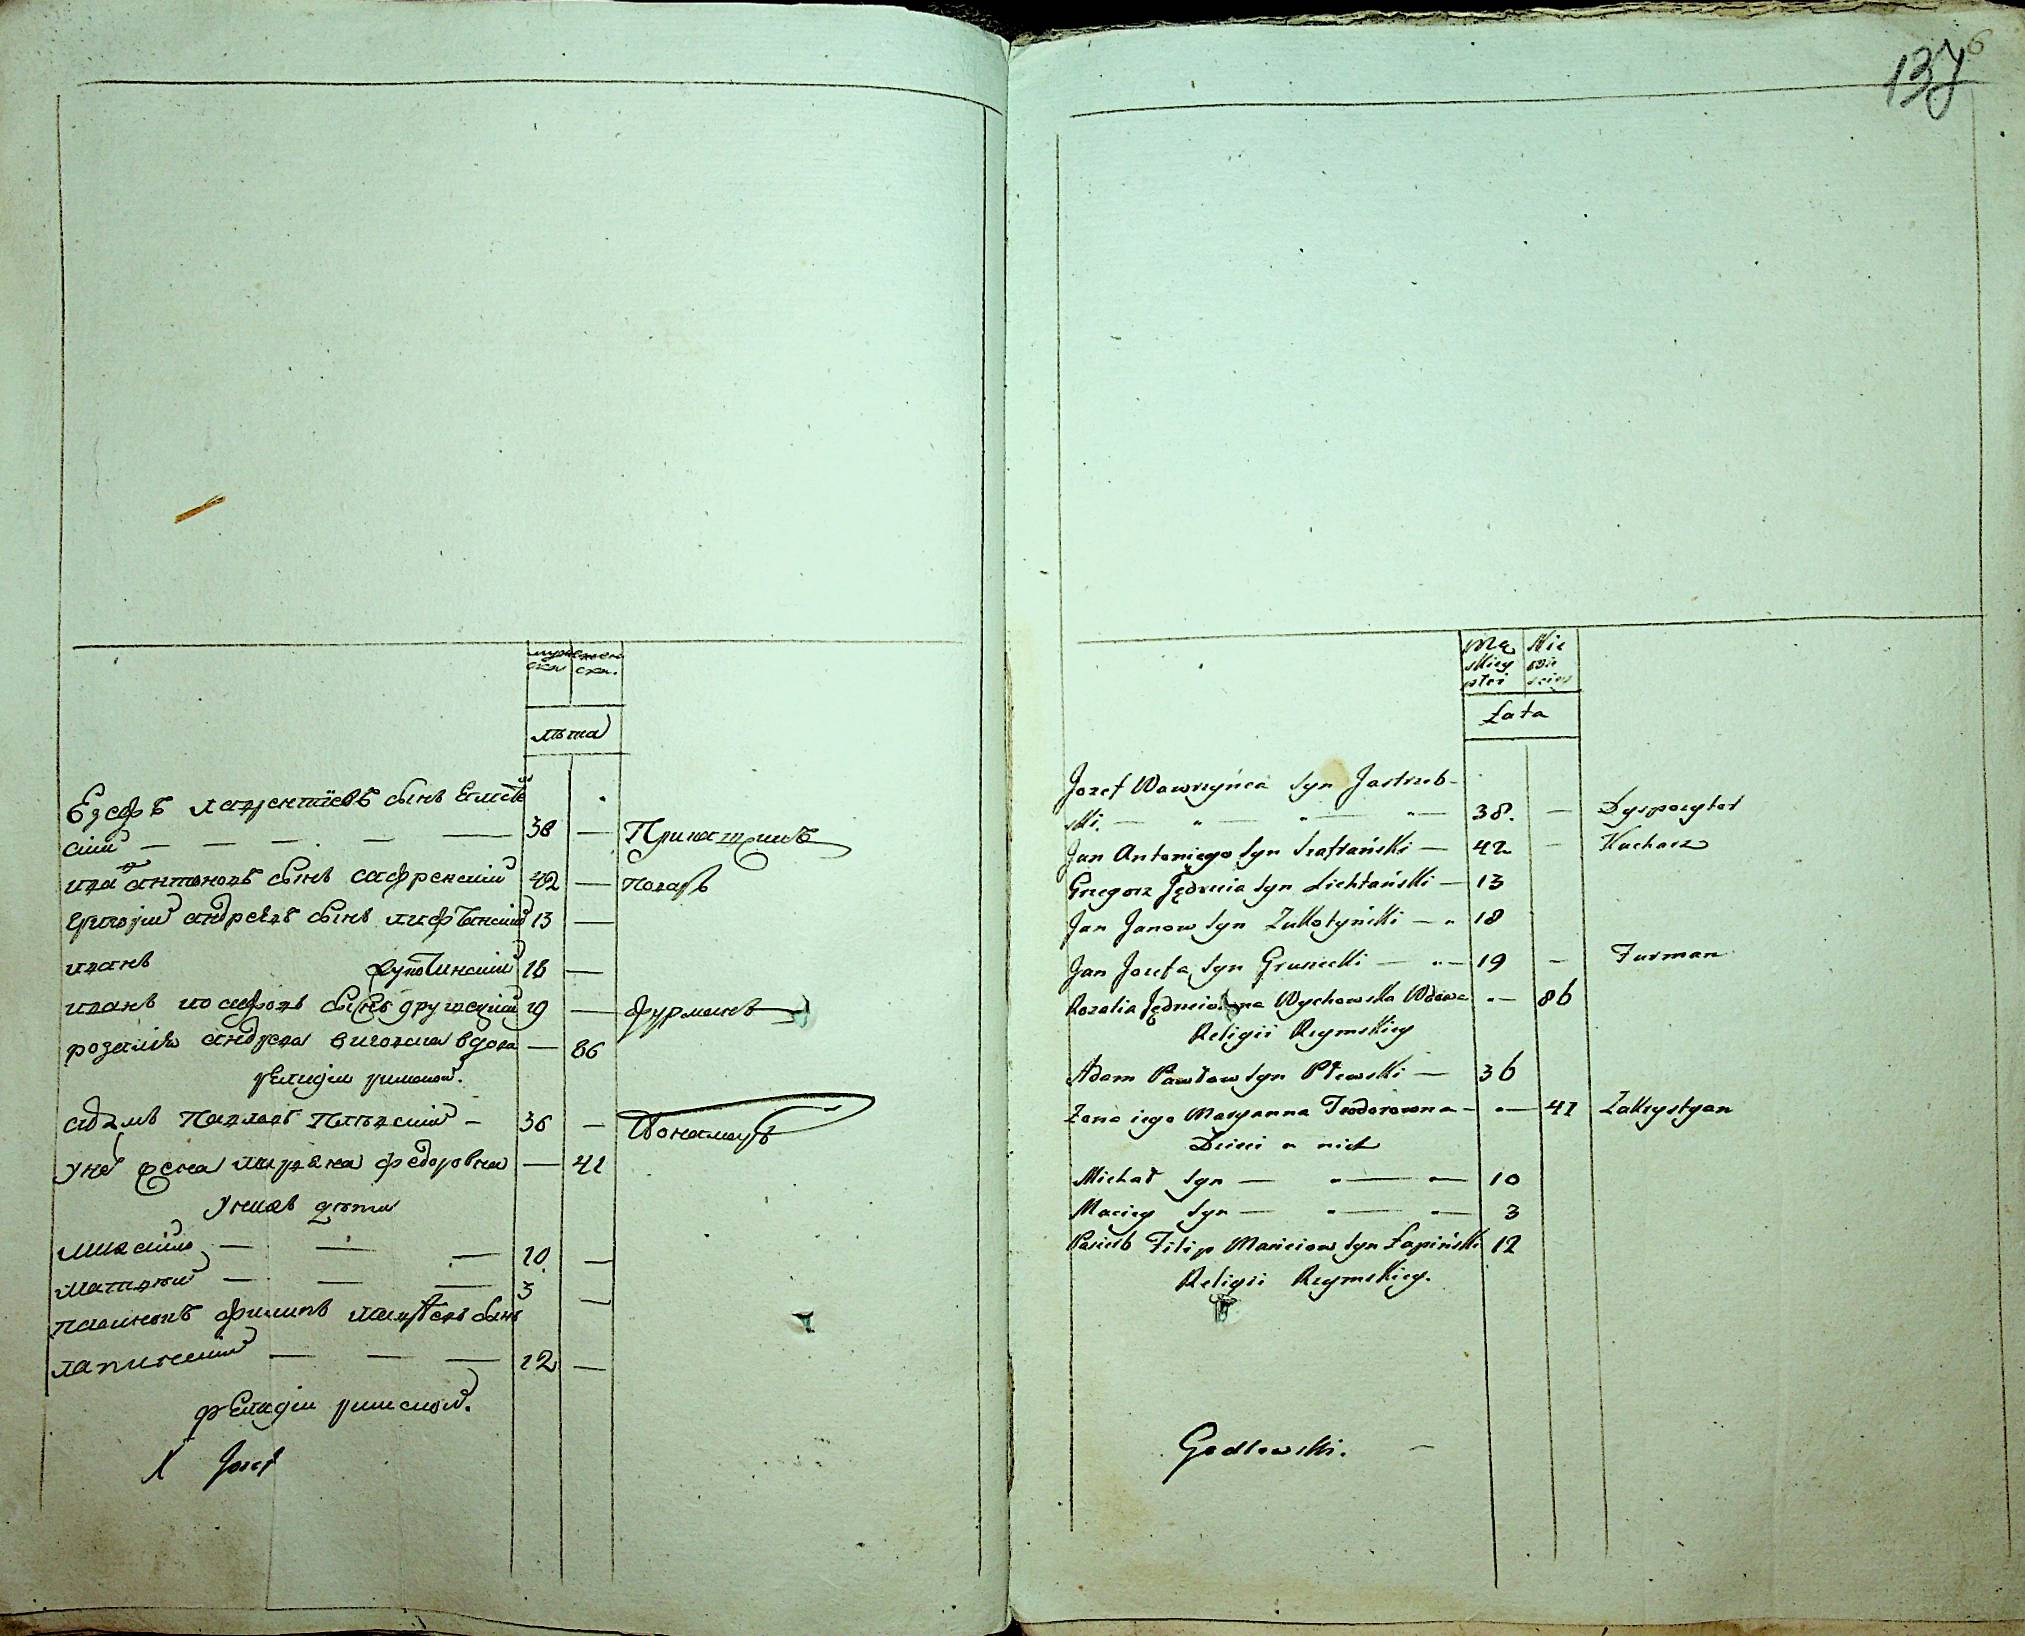 муже женс
ска ска.
лѣта
Езефъ лаврентіевъ сынъ
скии — — — — 38 — Прикащикъ
ива антоновъ сынъ сафренскии 42 — поваръ
григореи андреевъ сынъ лифтанскии 13 —
иванъ 18 —
иванъ иосифовъ сынъ грушецкии 19 — фурманъ
розалия андреева виговска вдова — 86
релидии римской.
адамъ павловъ — 36 — Пономарь
у не жена марьяна федоровна — 41
у нихъ дѣти
михаило — — — 10 —
матвеи — — — 3 —
пасинокъ филипъ матвеевъ сынъ
лапинскии — — — 12 —
релидии римской.
X Jozef
137 6
Mę Nie
skiey wie
płci sciey
Lata
Jozef Wawrzyńca Syn Jastrzeb-
ski. — " — " — " — 38. — Dyspozytor
Jan Antoniego Syn Szafrański — 42 — Kucharz
Grzegorz Jędrzeia Syn Lichtański — 13
Jan Janow Syn Zukotyński — " 18
Jan Jozefa Syn Gruszecki — " — 19 — Furman
Rozalia Wychowska Wdowa " — 86
Religii Rzymskiey
Adam Pawłow Syn Plewski — 36
Zona iego Maryanna Teodorowna - " — 41 Zakrystyan
Dzieci u nich
Michał Syn — " — " — 10
Maciey Syn — " — " — 3
Pasierb Filip Macieiow Syn Łapiński 12
Religii Rzymskiey.
Godlewski. —